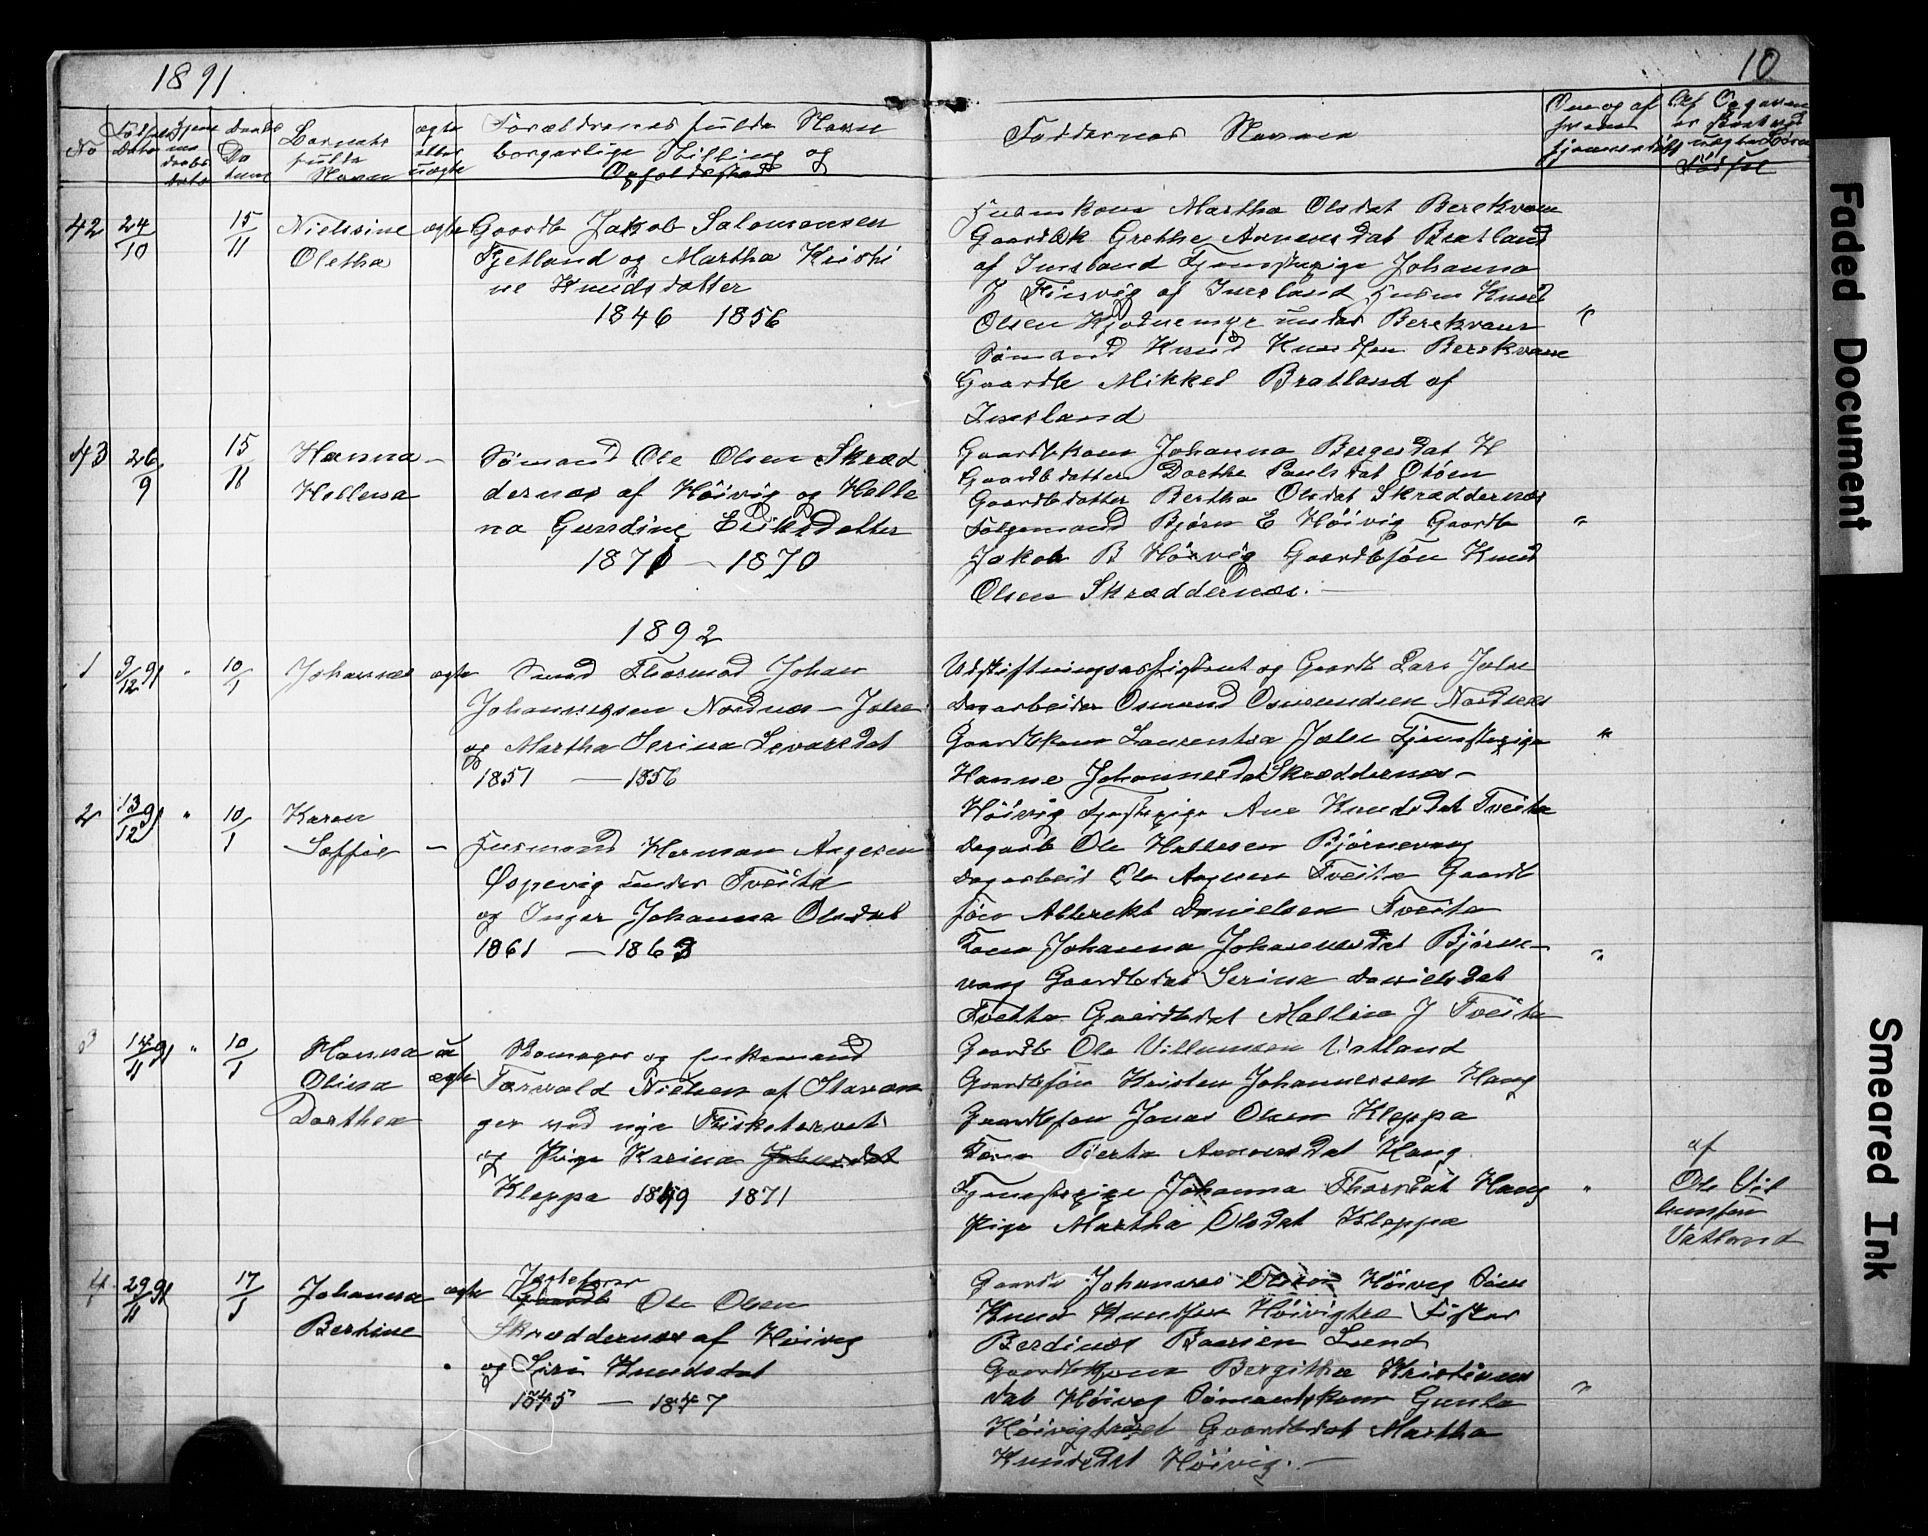 1891
10
No
Fødsels Dato
Hjemmedaabs Dato
Daabs Datum
Barnets fulde Navn
ægte eller uægte
Forældrenes fulde Navn
borgerlige Stilling og
Opholdssted
Faddernes Navne
42 24/10 15/11 Nielsine Oletha ægte
Gaardb Jakob Salomonsen
Fjetland og Martha Kristi
ne Knudsdatter
1846 1856
Husmkone Martha Olsdat Berekvam
Gaardbk Grethe Asmunsdat Bratland
af Imsland Tjenestepige Johanna
J Finsvig af Imsland Husm Knud
Olsen Kjodnemyr under Berekvam
Sømand Knud Knudsen Berekvam
Gaardb Mikkel Bratland af
Imsland
"
43 26/9 15/11 Hanna Hellena —
Sømand Ole Olsen Skræd
dernæs af Høivig og Helle
na Gurdine Eriksdatter
1871 — 1870
Gaardbkone Johanna Bergesdat H
Gaardb datter Dorthe Paulsdat Otøen
Gaardb datter Bertha Olsdat Skræddernæs
Følgemand Bjørn E Høivig Gaardb
Jakob B Høivig Gaardb søn Knud
Olsen Skræddernæs. —
"
1892
1 9/12 91 " 10/1 Johannes ægte
Smed Thormod Johan
Johannessen Nordnes — Jelse
og Martha Serina Sevarsdat
1851 — 1856
Udskiftningsassistent og Gaardb Lars Jelse
Dagarbeider Osmund Osmundsen Nordnes
Gaardbkone Laurentsa Jelse Tjenestepige
Hanne Johannesdat Skræddernes —
Høivig Tjenstepige Ane Knudsdat Tveita
"
2 13/12 91 " 10/1 Karen Soffie —
Husmand Herman Aagesen
Øspevig under Tveita
og Inger Johanna Olsdat
1861 — 1863
Dagarb Ole Hallesen Bjørnevaag
Dagarbeid Ole Aagesen Tveita Gaardb
søn Albrekt Danielsen Tveita
Kone Johanna Johannesdat Bjørne—
vaag Gaardbdat Serina Danielsdat
Tveita Gaardbdat Mallina J Tveita
"
3 14/11 91 " 10/1 Hanna Olina Dorthea uægte
Skomager og Enkemand
Torvald Nielsen af Stavan
ger ved nye Fisketorvet
og Pige Karina Johnsdat
Kleppa 1849 1871
Gaardb Ole Villumsen Vatland
Gaardbsøn Kristen Johannessen Haug
Gaardbsøn Jonas Olsen Kleppa
Kone Bierta Asmunsdat Haug
Tjenestepige Johanna Thorsdat Haug
Pige Martha Olsdat Kleppa
"
af
Ole Vil
lumsen
Vatland
4 29/11 91 17/1 Johanna Bertine ægte
Gaardb Ole Olsen
Skræddernæs af Høivig
og Siri Knudsdat
1845 — 1847
Gaardb Johannes Olsen Høiveg Søm
Knud Knudsen Høivigtræ Fisker
Berdines Baarsen Lund
Gaardbkone Bergitha Kristians
dat Høiveg Sømandskone Gunla
Høivigtræet Gaardbdat Martha
Knudsdat Høivig. —
"
Faded Document
Smeared Ink